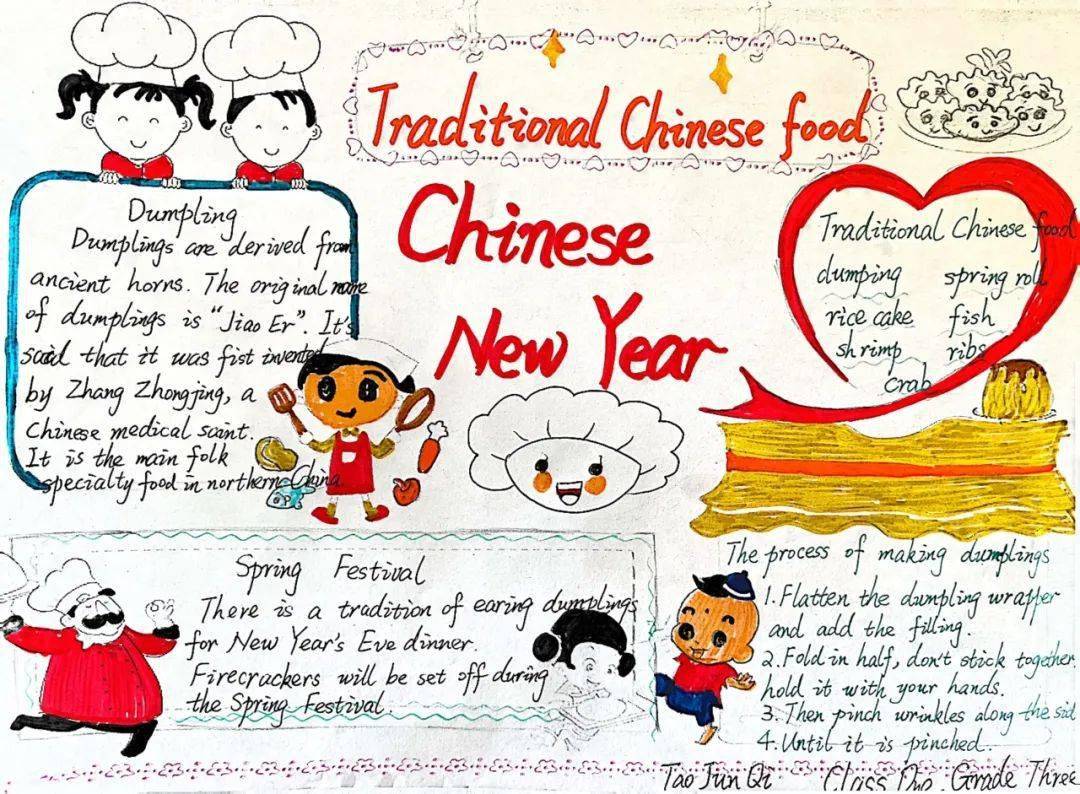 Traditional Chinese food
Chinese
New Year
Dumpling
Dumplings are derived from
ancient horns. The original name
of dumplings is "Jiao Er". It's
said that it was fist invented
by Zhang Zhongjing, a
Chinese medical saint.
It is the main folk
specialty food in northern China.
Traditional Chinese food
dumping spring roll
rice cake fish
shrimp ribs
crab
Spring Festival
There is a tradition of earing dumplings
for New Year's Eve dinner.
Firecrackers will be set off during
the Spring Festival.
The process of making dumplings
1. Flatten the dumpling wrapper
and add the filling.
2. Fold in half, don't stick together.
hold it with your hands.
3. Then pinch wrinkles along the sid
4. Until it is pinched.
Tao Jun Qi Class One, Grade Three